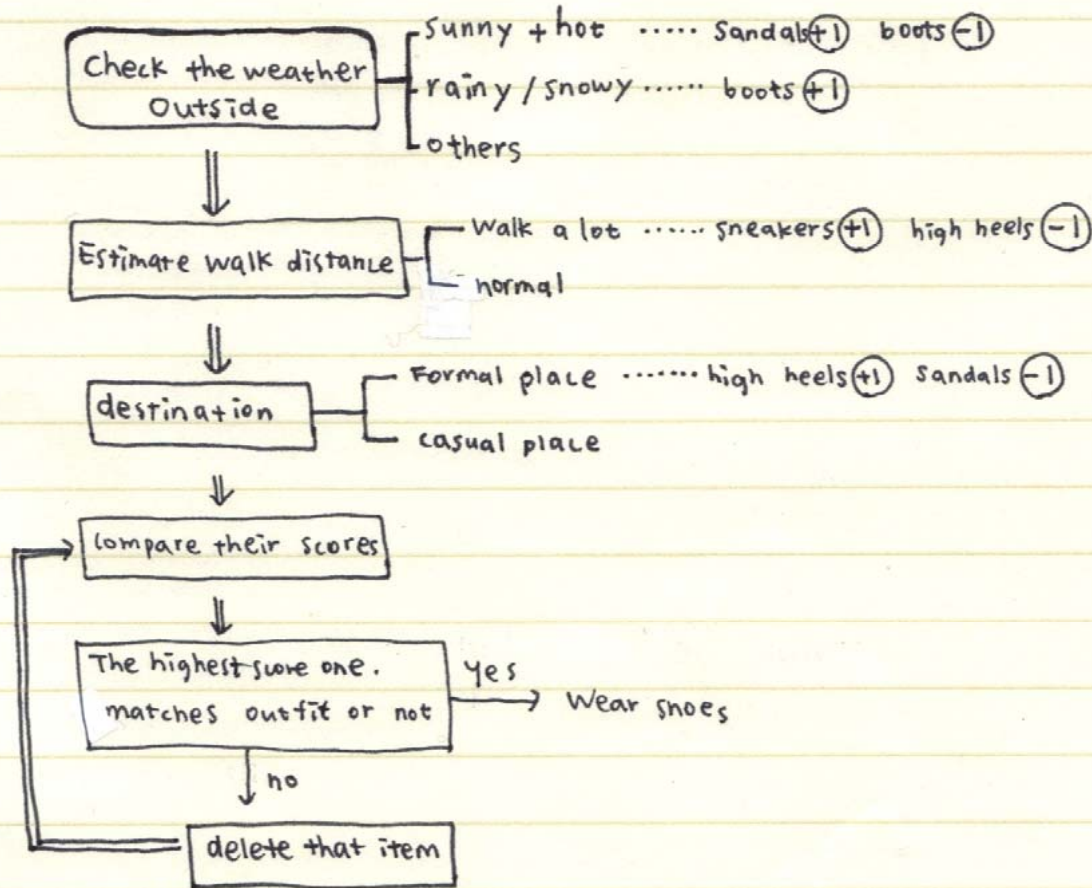 Check the weather
Outside
sunny + hot ..... Sandals +1 boots -1
rainy / snowy ...... boots +1
others
Estimate walk distance
Walk a lot ...... sneakers +1 high heels -1
normal
destination
Formal place ....... high heels +1 Sandals -1
casual place
Compare their scores
The highest score one.
matches outfit or not
yes
Wear shoes
no
delete that item